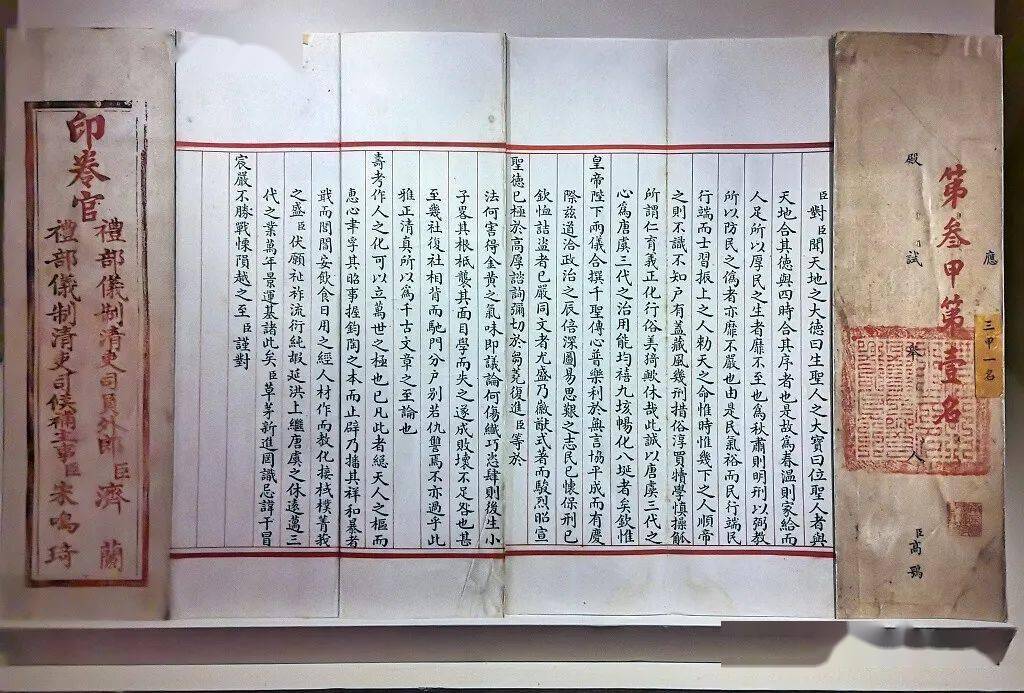 第叁甲第壹名
三甲一名
應
殿試舉人臣高鶚
臣對臣聞天地之大德曰生聖人之大寶曰位聖人者與
天地合其德與四時合其序者也是故為春溫則家給而
人足所以厚民之生者靡不至也為秋肅則明刑以弼教
所以防民之偽者亦靡不嚴也由是民氣裕而民行端民
行端而士習振上之人勅天之命惟時惟幾下之人順帝
之則不識不知戶有蓋藏風幾刑措俗淳買犢學慎操觚
所謂仁育義正化行俗美猗歟休哉此誠以唐虞三代之
心為唐虞三代之治用能均禧九垓暢化八埏者矣欽惟
皇帝陛下兩儀合撰千聖傳心普樂利於無言協平成而有慶
際茲道洽政治之辰倍深圖易思艱之志民已懷保刑已
欽恤詰盜者已嚴同文者尤盛乃徽猷式著而駿烈昭宣
聖德已極於高厚諮詢彌切於芻蕘復進臣等於
法何害得金黃之氣味即議論何傷纖巧恣肆則後生小
子畧其根柢襲其面目學而失之遂成敗壞不足咎也甚
至幾社復社相肯而馳門分戶別若仇讐焉不亦過乎此
雅正清真所以為千古文章之至論也
壽考作人之化可以立萬世之極也已凡此者總天人之樞而
惠心聿孚其昭事握鈞陶之本而止辟乃播其祥和暴者
戢而閭閻妥飲食日用之經人材作而教化接棫樸菁莪
之盛臣伏願祉祚流衍純嘏延洪上繼唐虞之休遠邁三
代之業萬年景運基諸此矣臣草茅新進罔識忌諱干冒
宸嚴不勝戰慄隕越之至臣謹對
印卷官
禮部儀制清吏司員外郎臣濟蘭
禮部儀制清吏司候補主事臣宋鳴琦